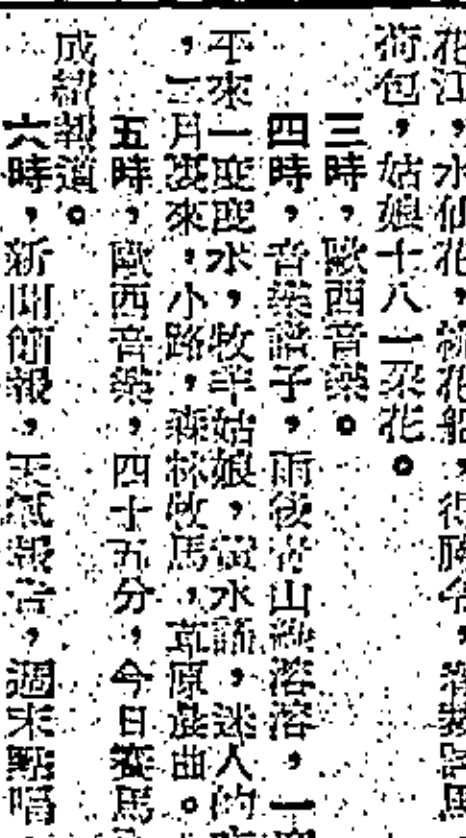 花江，水仙花，新花船，得勝令，
荷包，姑娘十八一朵花。
三時，歐西音樂。
四時，音樂譜子，雨後青山綠溶溶，一
不來一度度水，牧羊姑娘，水謠，迷人的
，二月裏來，小路，森林牧馬，草原戲曲。
五時，歐西音樂，四十五分，今日賽馬
成績報道。
六時，新聞簡報，天氣報告，週末點唱